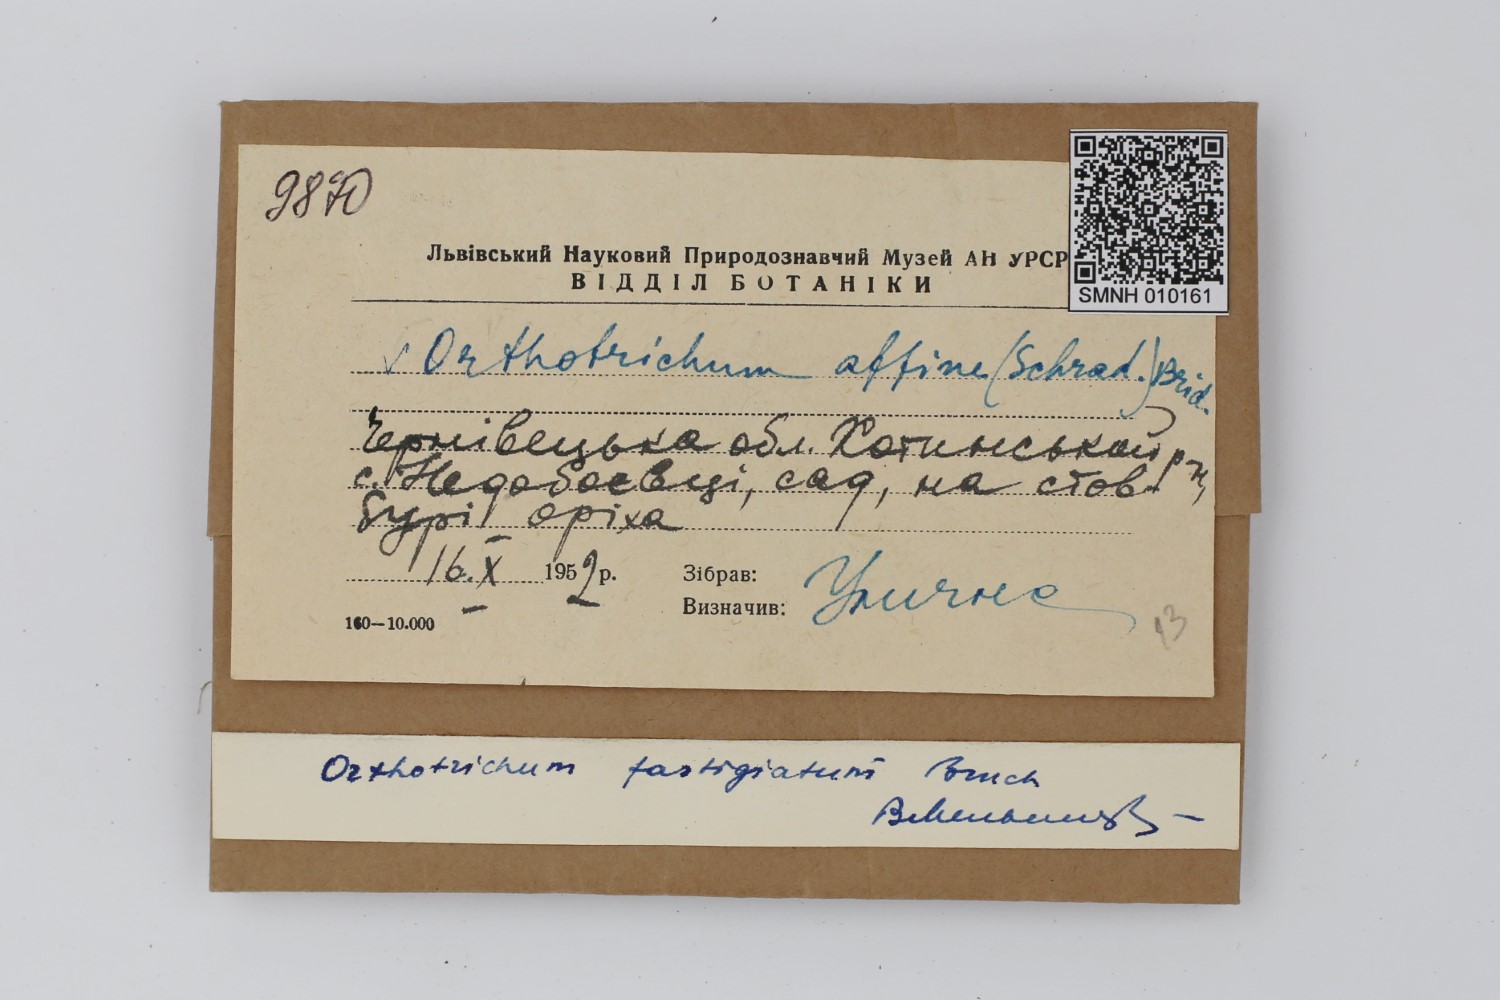 9870
SMNH 010161
Львівський Науковий Природознавчий Музей АН УРСР
ВІДДІЛ БОТАНІКИ
✓ Orthotrichum affine (Schrad.) Brid.
Чернівецька обл. Хотинський р-н,
с. Недобоєвці, сад, на стов-
бурі оріха
16.X 1952 р.
Зібрав:
Визначив: Улична
160—10.000
13
Orthotrichum fastigiatum Bruch